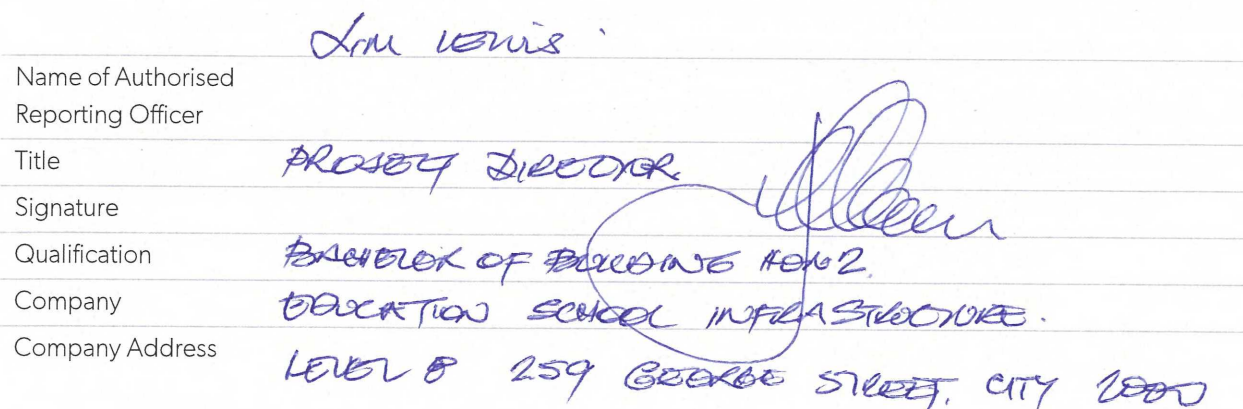 Jim LEWIS
Name of Authorised
Reporting Officer
Title PROJECT DIRECTOR
Signature
Qualification BACHELOR OF BUILDING HON 2
Company EDUCATION SCHOOL INFRASTRUCTURE.
Company Address LEVEL 8 259 GEORGE STREET, CITY 2000